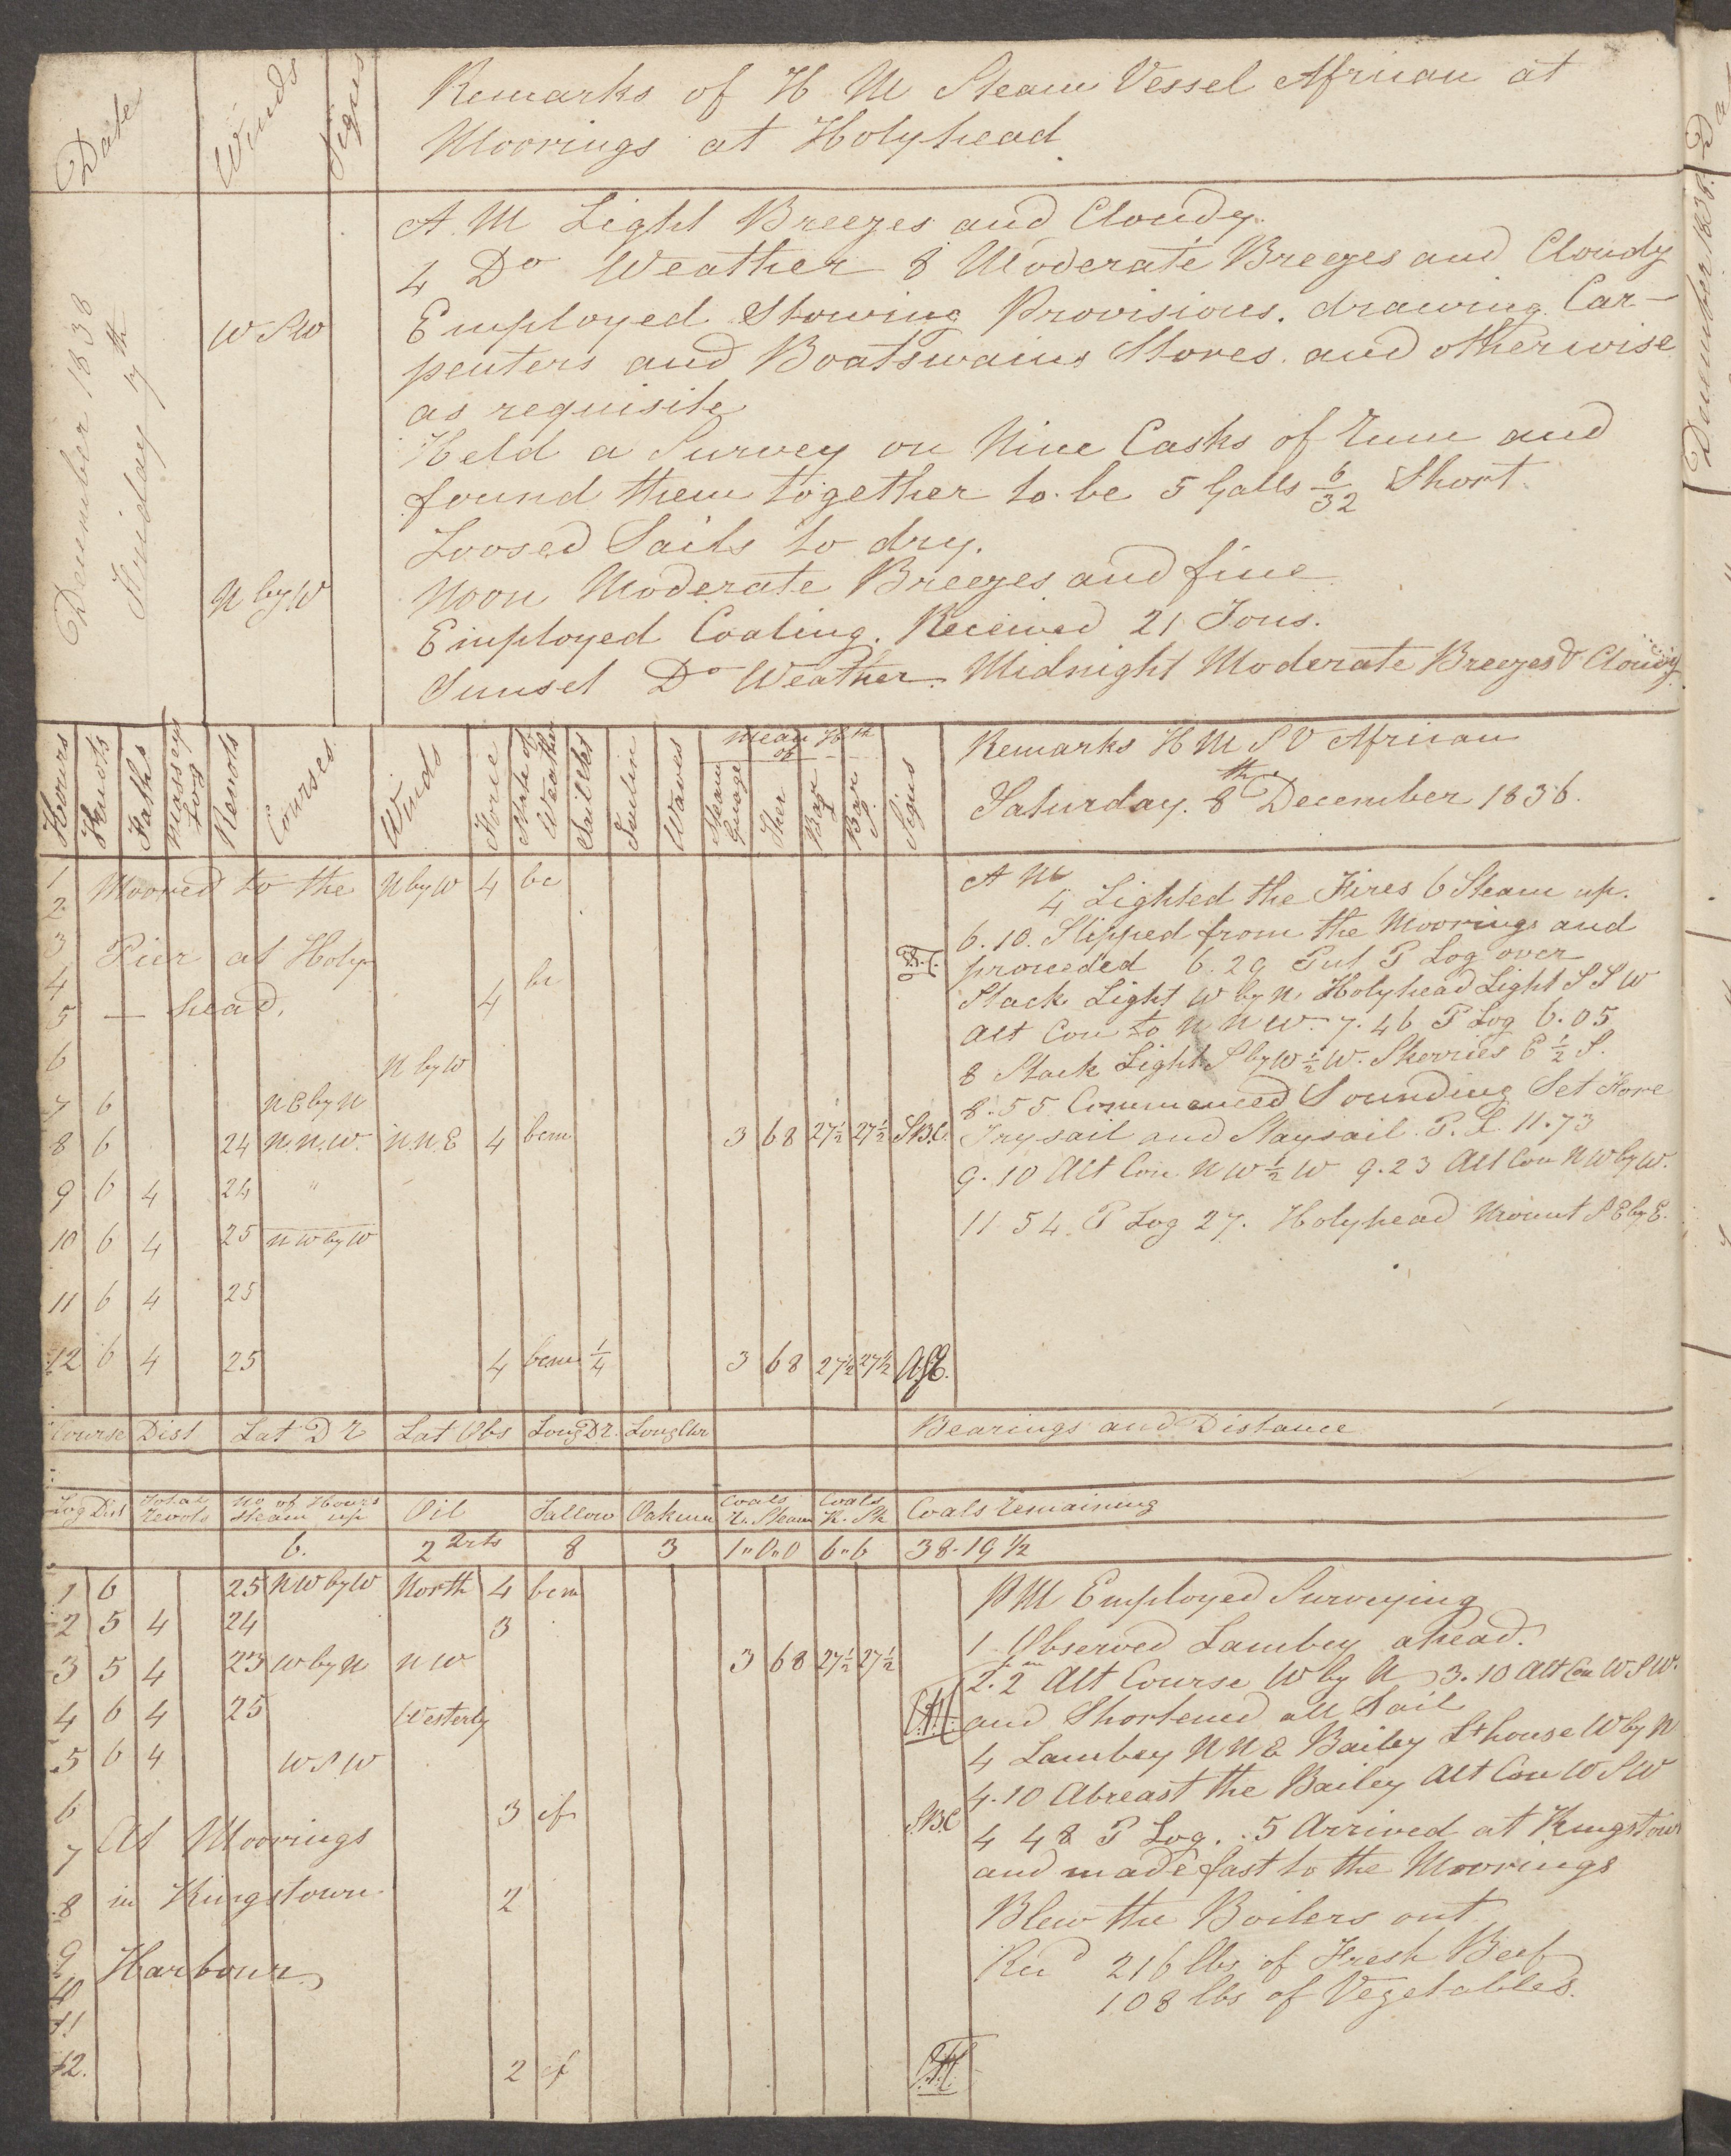 Date Winds Signs Remarks of H M Steam Vessel African at
Moorings at Holyhead
December 1838
Friday 7th
W S W
N by W
A.M Light Breezes and Cloudy.
4 Do Weather 8 Moderate Breezes and Cloudy
Employed Stowing Provisions. drawing Car-
penters and Boatswains Stores. and otherwise
as requisite
Held a Survey on Nine Casks of Rum and
found them together to be 5 Galls 6/32 Short.
Loosed Sails to dry.
Noon Moderate Breezes and fine
Employed Coaling. Received 21 Tons.
Sunset Do Weather. Midnight Moderate Breezes & Cloudy
Hours Knots Faths Masseys Log Revots Courses Winds Force State of Weather Sail Set Inclin Waves Mean Ht of Steam Guage Ther Bar Bar S. Signs
Remarks H M S V African
Saturday. 8th December 1838.
1 Moored to the N by W 4 bc
2
3 Pier at Holy
4 bc
5 — head. 4
6 N by W
7 6 N E by N
8 6 24 N.N.W. N.N.E 4 bcm 3 68 27½ 27½ S.B.C.
9 6 4 24 "
10 6 4 25 N W by W
11 6 4 25
12 6 4 25 4 bcm ¼ 3 68 27½ 27½
A M
4 Lighted the Fires 6 Steam up.
6.10. Slipped from the Moorings and
proceeded 6.29 Put P Log over
Stack Light W by N Holyhead Light S S W
Alt Cou to N N W. 7.46 P Log 6.05
8 Stack Light S by W ½ W. Skerries E ½ S.
8.55 Commenced Sounding Set Fore
Trysail and Staysail. P. L. 11.73
9.10 Alt Cou N W ½ W 9.23 Alt Cou N W by W.
11 54 P Log 27. Holyhead Mount S E by E.
Course Dist Lat D R Lat Obs Long D R. Long Chr Bearings and Distance
Log Dist Total Revots No of Hours Steam up Oil Tallow Oakum Coals R. Steam Coals K. St Coals Remaining
6. 2 Qrts 8 3 1"0"0 6"6 38.19 ½
1 6 25 N W by W North 4 bcm
2 5 4 24 3
3 5 4 23 W by N N W 3 68 27½ 27½
4 6 4 25 Westerly
5 6 4 W S W
6 3 cf S.B.C
7 At Moorings
8 in Kingstown 2
9 Harbour
10
11
12. 2 cf
P M Employed Surveying
1 Observed Lambey ahead.
2.2 Alt Course W by N 3.10 Alt Cou W S W.
and Shortened all Sail
4 Lambey N N E Bailey Lt house W by N
4.10 Abreast the Bailey Alt Cou W S W
4 48 P Log. . 5 Arrived at Kingstown
and made fast to the Moorings
Blew the Boilers out
Recd 216 lbs of Fresh Beef
108 lbs of Vegetables.
December 1838.